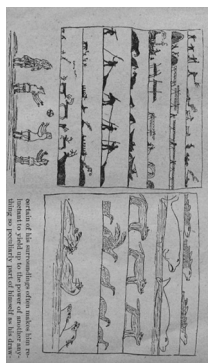 certain of his surroundings often makes him re-
luctant to yield up to the power of another any-
thing so peculiarly part of himself as his draw-